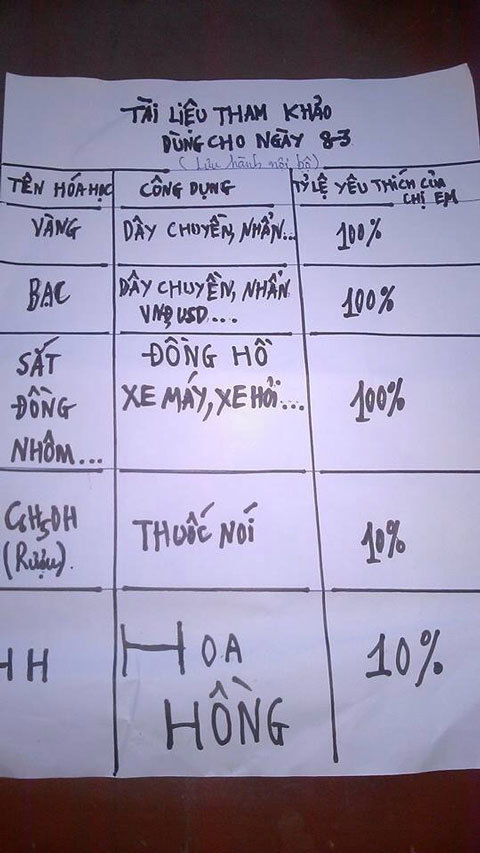 TÀI LIỆU THAM KHẢO
DÙNG CHO NGÀY 8-3
(Lưu hành nội bộ)
TÊN HÓA HỌC
CÔNG DỤNG
TỶ LỆ YÊU THÍCH CỦA
CHỊ EM
VÀNG
DÂY CHUYỀN, NHẪN...
100%
BẠC
DÂY CHUYỀN, NHẪN
VNĐ, USD...
100%
SẮT
ĐỒNG
NHÔM...
ĐỒNG HỒ
XE MÁY, XE HƠI...
100%
C2H5OH
(RƯỢU).
THUỐC NÓI
10%
HH
HOA
HỒNG
10%